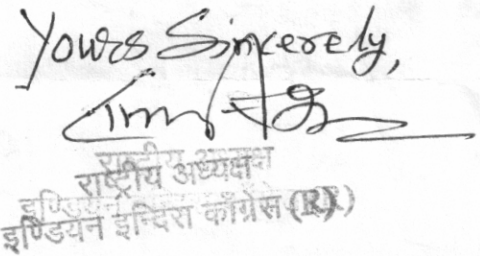 Yours Sincerely,
राष्ट्रीय अध्यक्ष
इण्डियन इन्दिरा काँग्रेस (R)